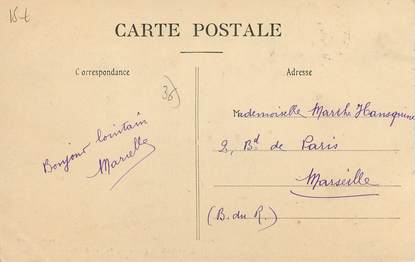 15 t
CARTE POSTALE
Correspondance
Adresse
35
Mademoiselle Marthe
2, Bd de Paris
Marseille
(B. du R.)
Bonjour lointain
Marielle